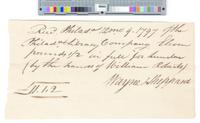 Rec'd Philad'a 9, 1797 of the
Philad'a Library Company Eleven
pounds 1/2 in full for
(by the hands of William Roberts)
Wayne Sheppard
£11.1.2